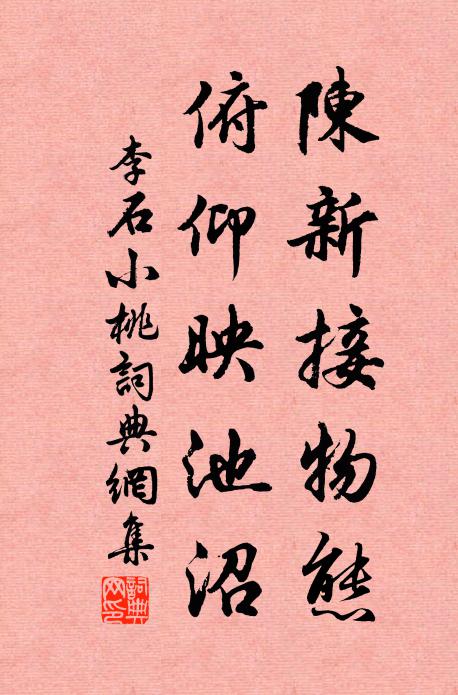 陳新接物態
俯仰映池沼
李石小桃詞典網集
詞典網印